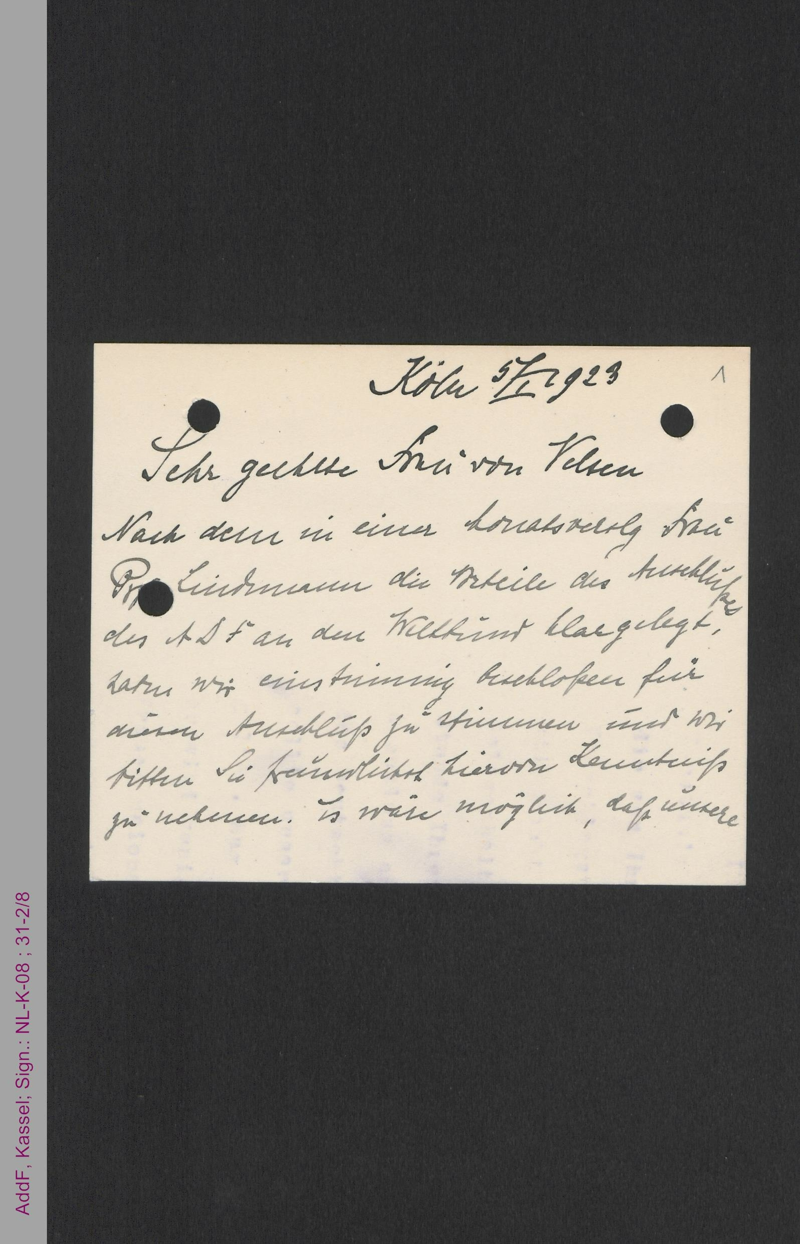 Köln 5/I 1923
1
Sehr geehrte Frau von Velsen
Nach dem in einer Monatsverslg Frau
Prof Lindemann die Vorteile des Anschlußes
des ADF an den Weltbund klargelegt,
haben wir einstimmig beschloßen für
diesen Anschluß zu stimmen und wir
bitten Sie freundlichst hiervon Kenntniß
zu nehmen. Es wäre möglich, daß unsere
AddF, Kassel; Sign.: NL-K-08 ; 31-2/8